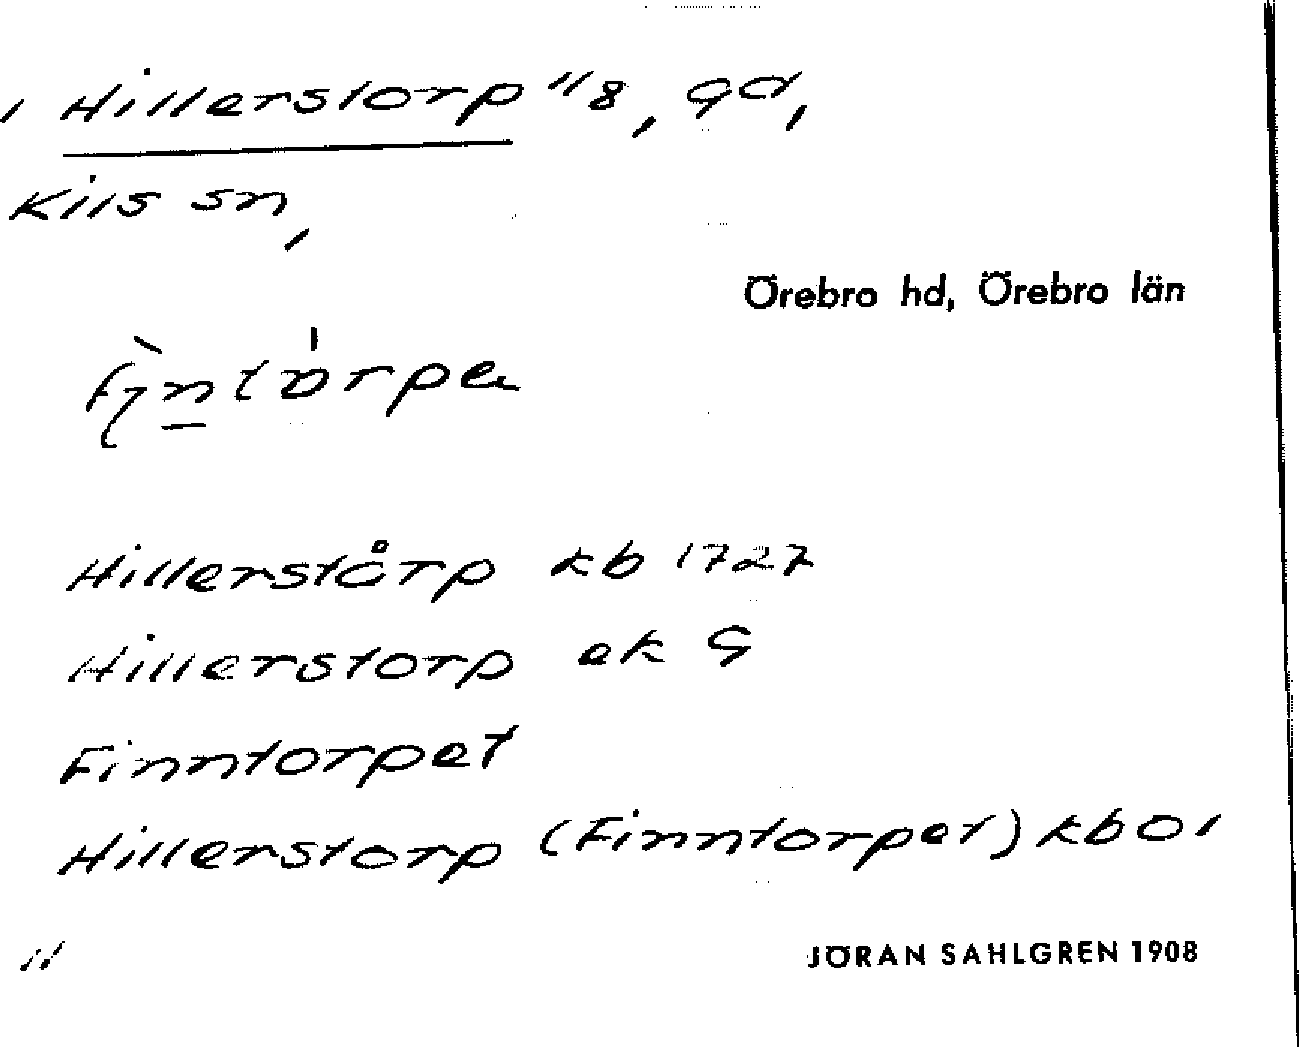 , Hillerstorp 1/8, gd,
Kils sn,
Örebro hd, Örebro län
Hillerstårp kb 1727
Hillerstorp ek G
Finntorpet
Hillerstorp (Finntorpet) kb 01
JÖRAN SAHLGREN 1908